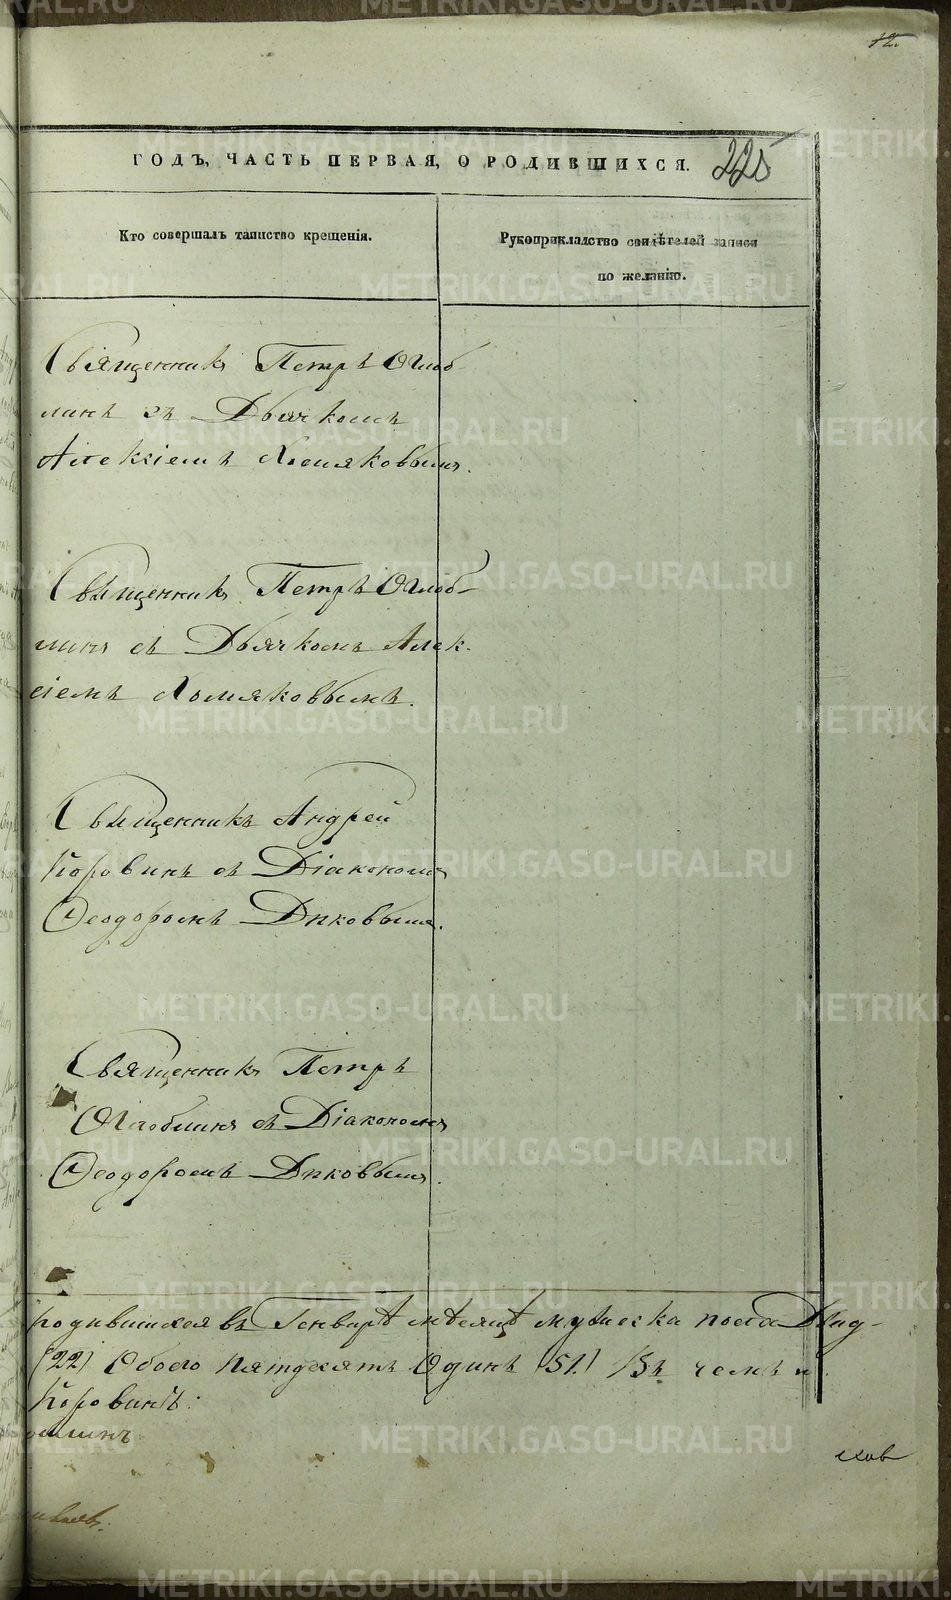 12.
ГОДЪ, ЧАСТЬ ПЕРВАЯ, О РОДИВШИХСЯ. 225
Кто совершалъ таинство крещенія.
Рукоприкладство свидѣтелей записи
по желанію.
Священникъ Петръ Оглоб
линъ съ Дьячкомъ
Алексіемъ Хомяковымъ.
Священникъ Петръ Оглоб-
линъ съ Дьячкомъ Алек-
сіемъ Хомяковымъ.
Священникъ Андрей
Коровинъ съ Діакономъ
Ѳеодоромъ Диковымъ.
Священникъ Петръ
Оглоблинъ съ Діакономъ
Ѳеодоромъ Диковымъ.
родившихся въ Генварѣ мѣсяцѣ мужеска пола Двад-
(22) Обоего пятдесятъ одинъ (51.) Въ чемъ и
Коровинъ.
METRIKI.GASO-URAL.RU